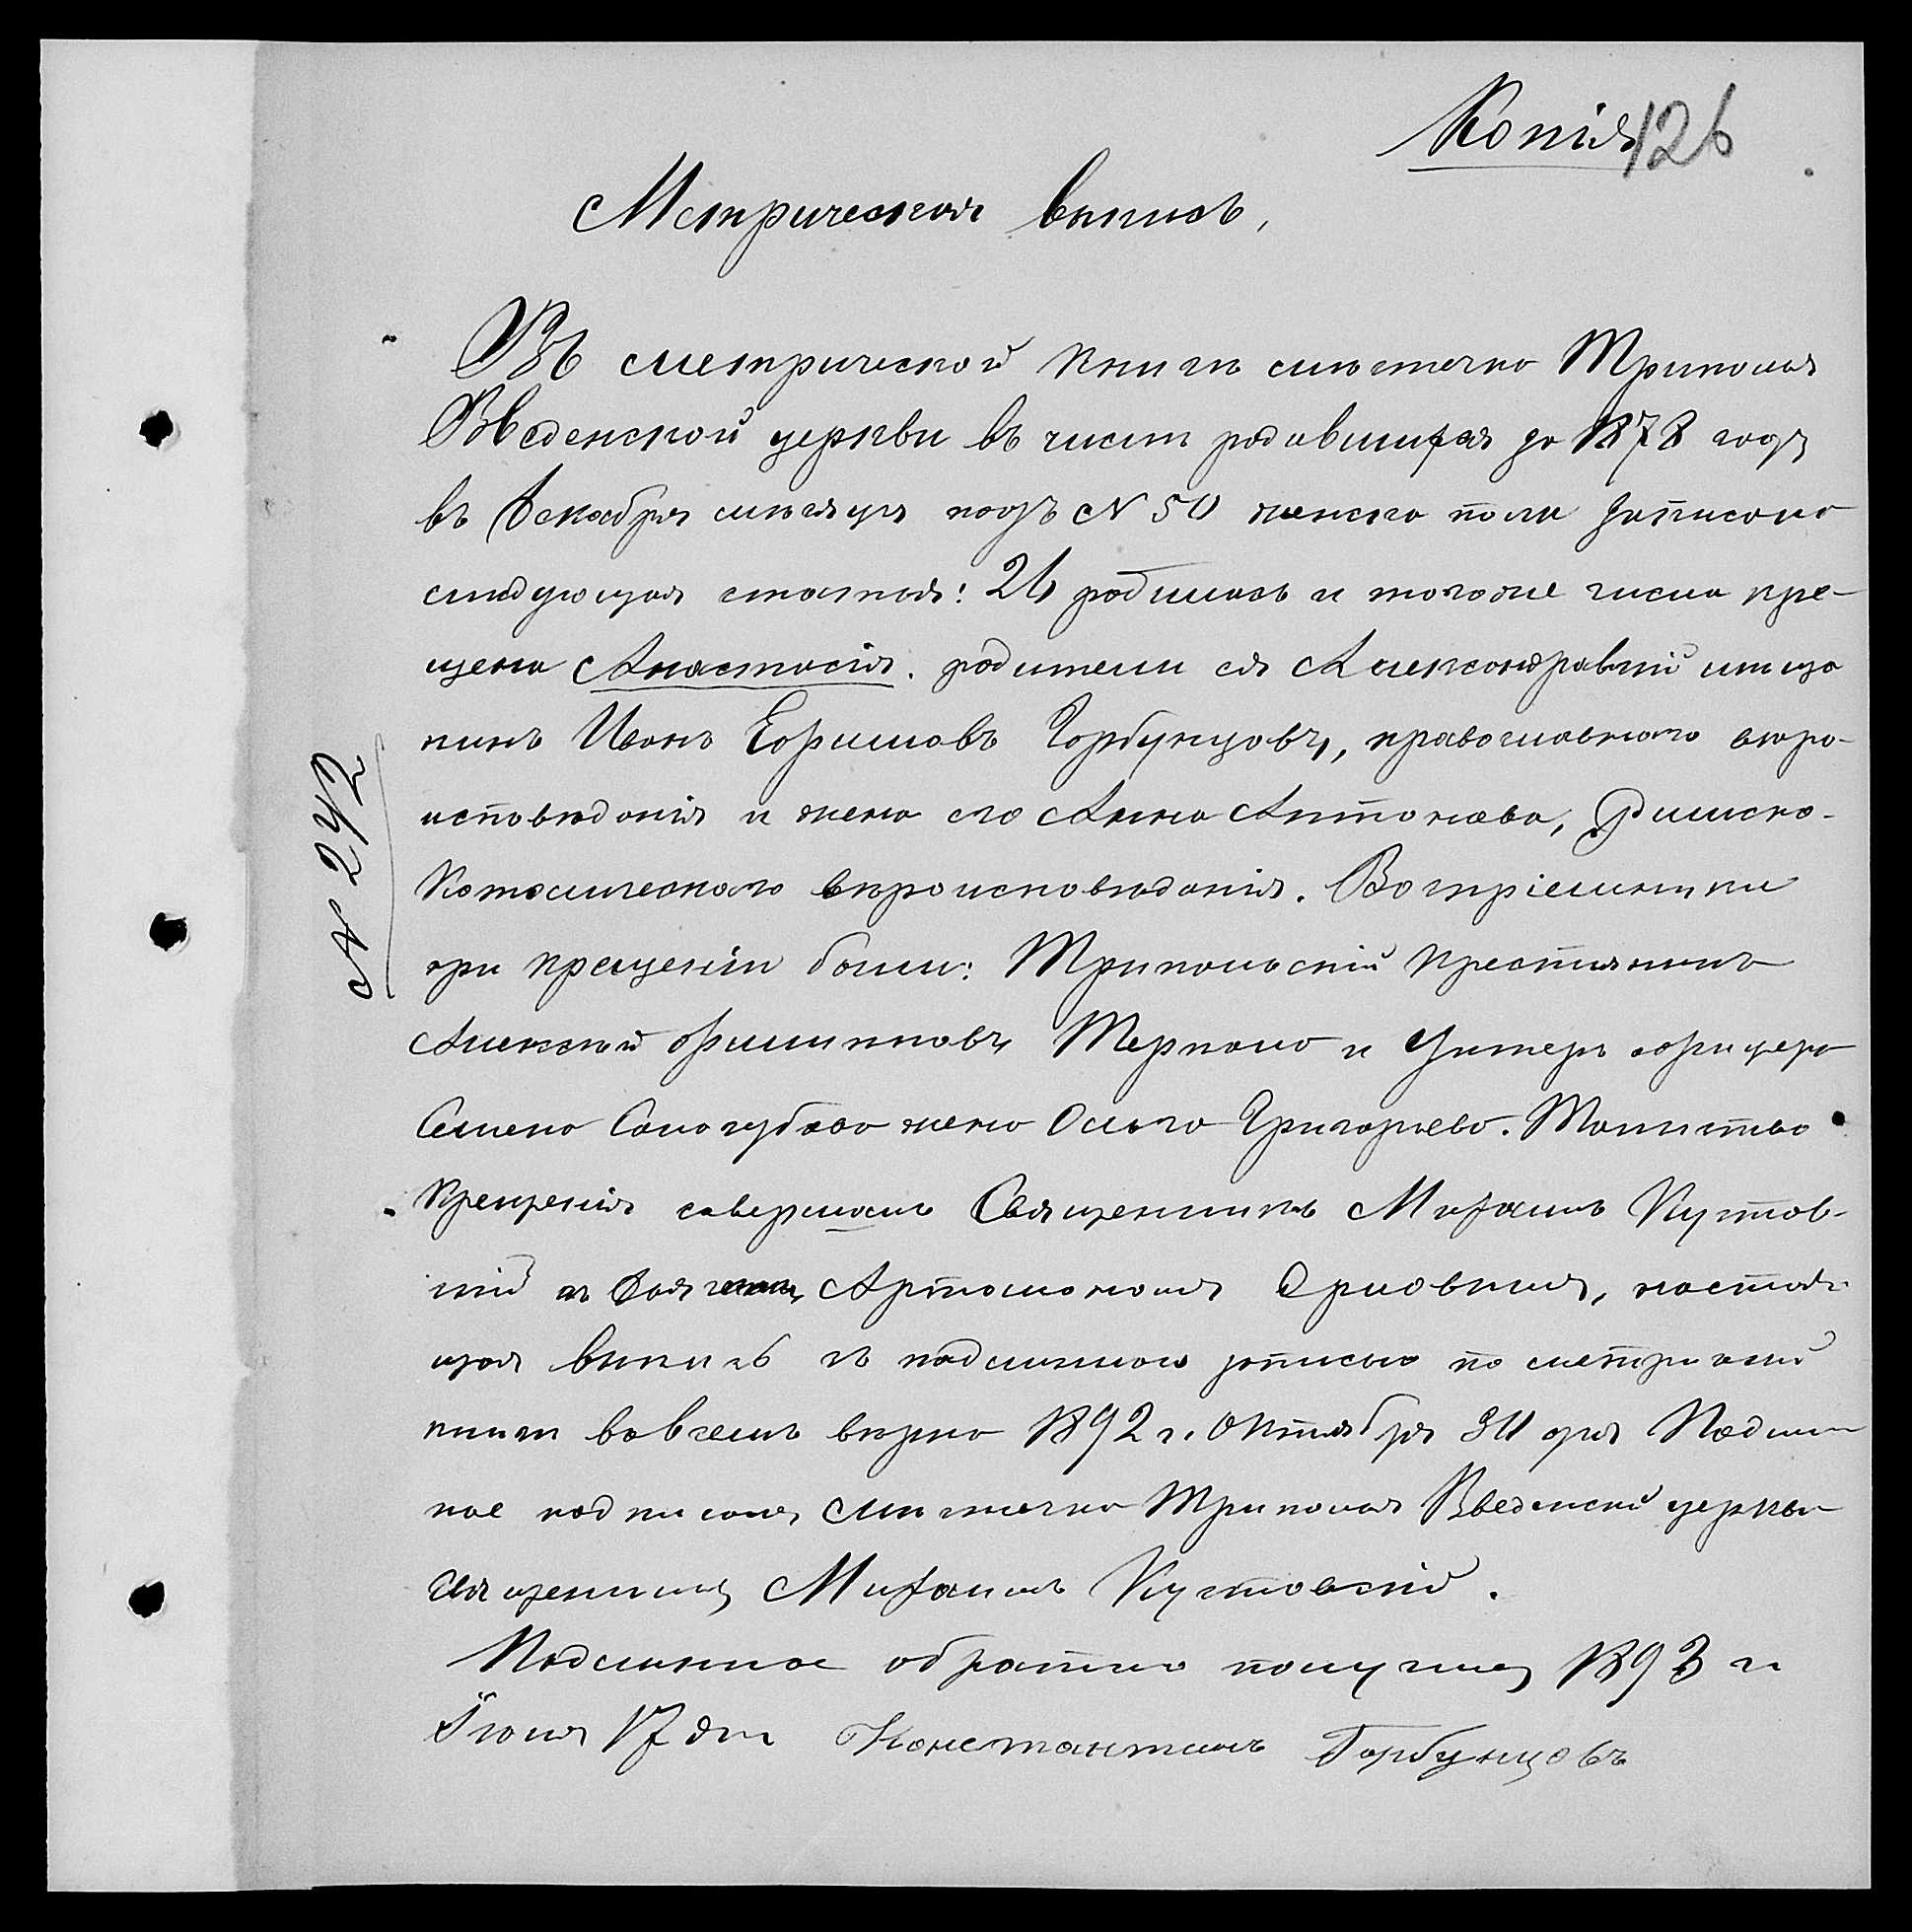 Копія 126
Метрическая выпись,
Въ метрической книгѣ мѣстечка Триполья
Введенской церкви въ части родившихся за 1878 годъ
въ декабрѣ мѣсяцѣ подъ № 50 женска пола записана
слѣдующая статья: 26 родилась и тогоже числа кре-
щена Анастасія. родители ея Александравкій мѣща
нинъ Иванъ Ефимовъ Горбунцовъ, православного вѣро-
исповѣданія и жена его Анна Антонова, Римско-
Католического вѣроисповѣданія. Воспріемники
при крещеніи были: Трипольскій крестьянинъ
Алексѣй Филиповъ и Унтеръ офицера
Семена жена Ольга Григорьева. Таинство
Крещенія совершалъ Священникъ Михаилъ Кустов-
скій съ Орловымъ, настоя-
щая выпись съ подлинною записью по метричекой
книги вовсемъ вѣрна 1892 г. Октября 30 дня Подлин
ное подписалъ мѣстечка Триполья Введенской церкви
священникъ Михаилъ Кустовскій.
Подлинное обратно получилъ 1893 г.
Іюня 17 дня Константинъ Горбунцовъ
№ 242